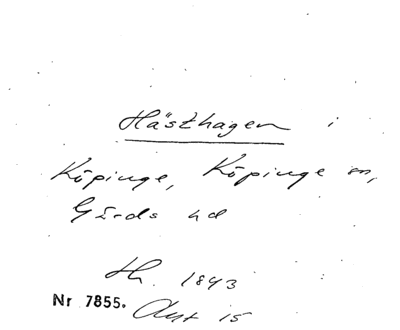 Hästhagen i
Köpinge, Köpinge sn,
Gärds hd
Th. 1843
Nr 7855. Akt 15